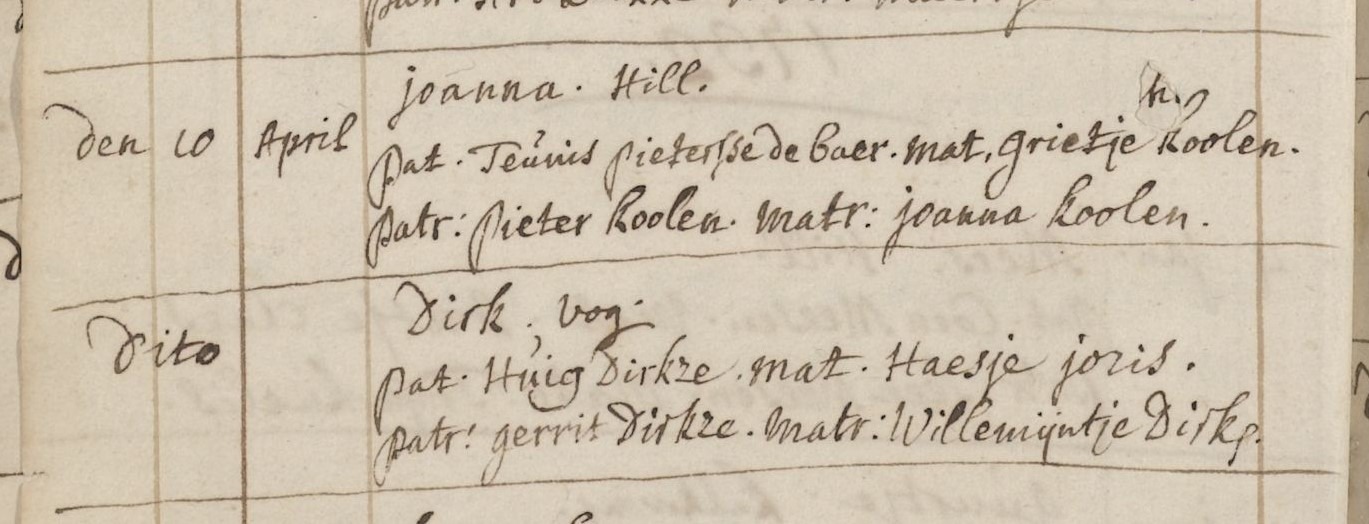 joanna. Hill.
den 10 April
h.
Pat. Teúnis Pieterse de boer. mat. grietje koolen.
Patr: Pieter koolen. matr: joanna koolen.
Dirk. vog.
Dito
Pat. Húig Dirkze. mat. Haesje joris.
Patr: gerrit Dirkze. matr: Willemijntje Dirks.